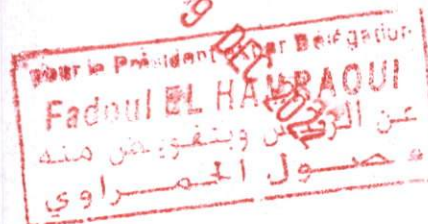 9 DEC 202
Pour le Président et par Délégation
Fadoul EL HAMRAOUI
عن الرئيس وبتفويض منه
فضول الحمراوي